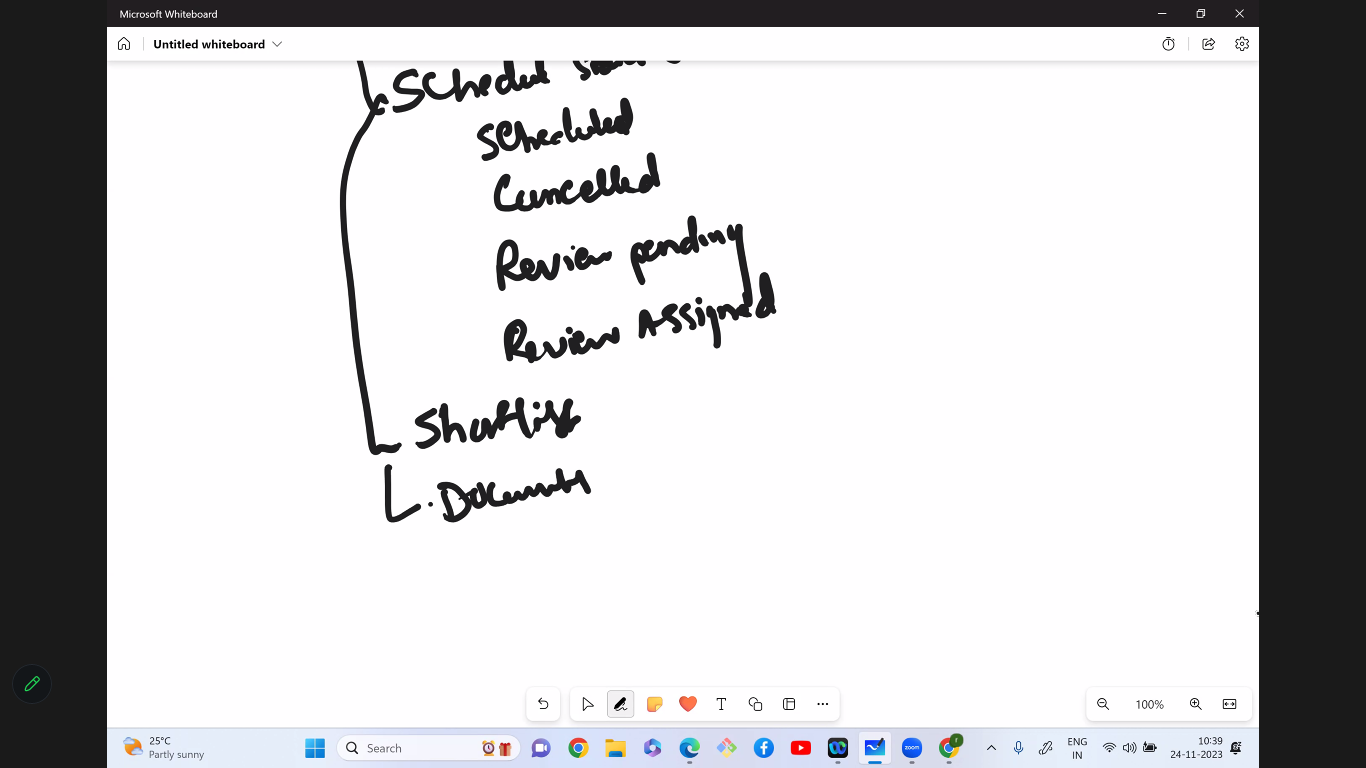 Microsoft Whiteboard
Untitled whiteboard
Schedul
Scheduled
Cancelled
Review pending
Review Assigned
Shortlist
Documents
100%
25°C
Partly sunny
Search
zoom
T
ENG
IN
10:39
24-11-2023